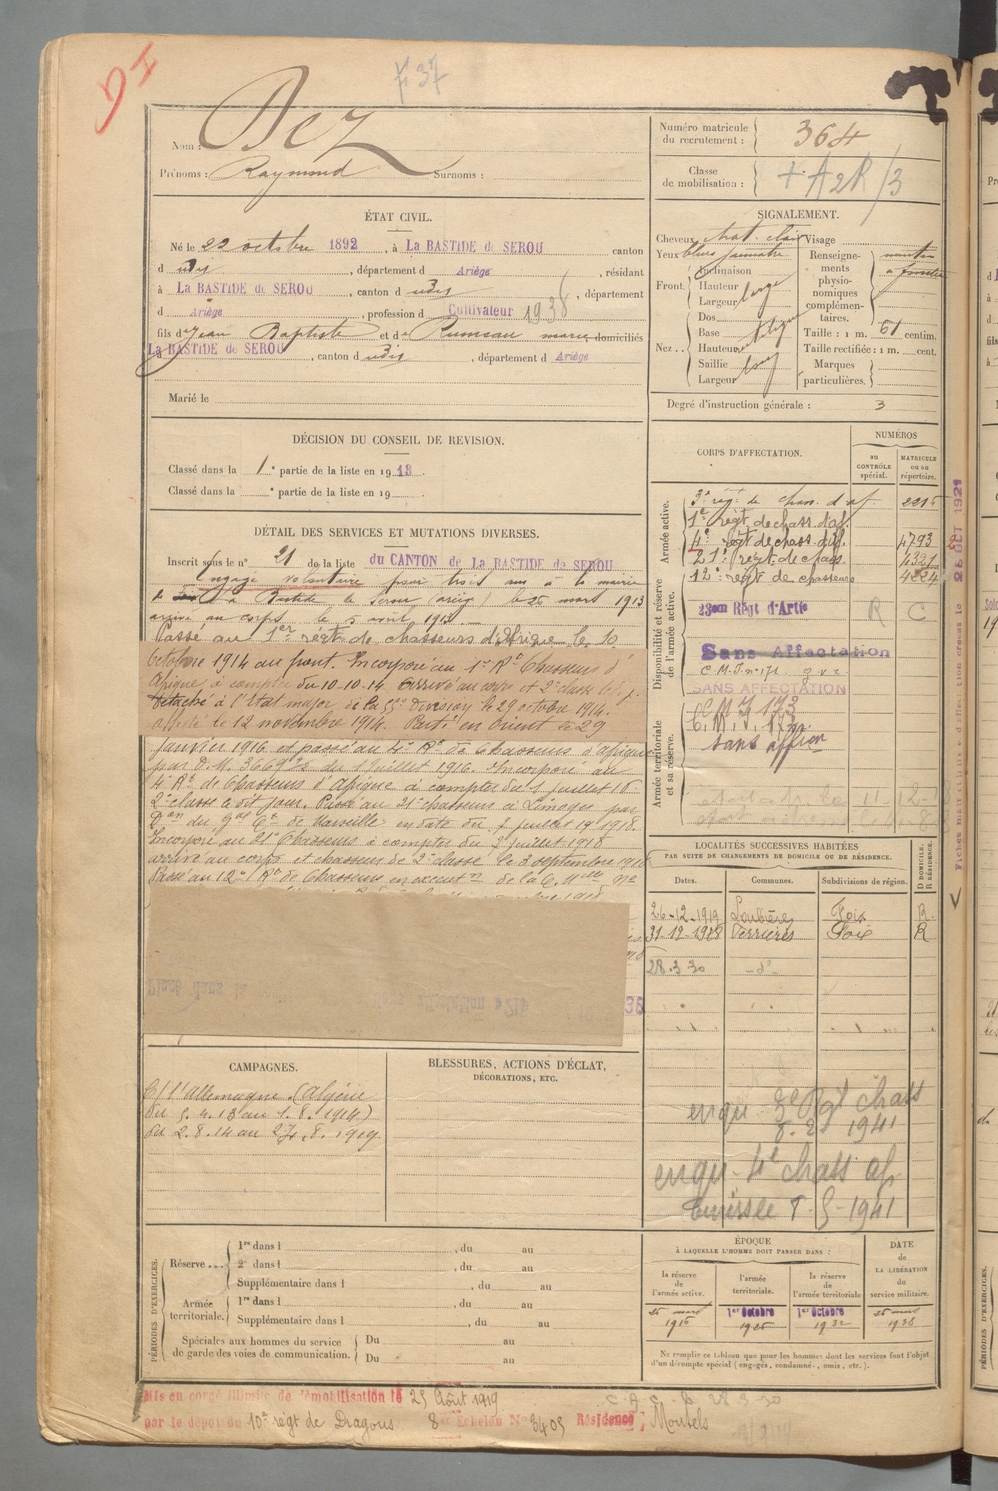 f 37
Nom : Dez
Prénoms : Raymond Surnoms :
Numéro matricule du recrutement : 364
Classe de mobilisation : + A2R/3
ÉTAT CIVIL.
Né le 22 octobre 1892, à La BASTIDE de SEROU canton
d udis, département d Ariège, résidant
à La BASTIDE de SEROU, canton d udis, département
d Ariège, profession d Cultivateur 1938
fils d Jean Baptiste et d Rumeau marie domiciliés
à La BASTIDE de SEROU, canton d udis, département d Ariège
Marié le
SIGNALEMENT.
Cheveux chat. clair Visage
Yeux
Front. Inclinaison
Hauteur large
Largeur
Nez.. Dos
Base
Hauteur
Saillie
Largeur
Renseignements physionomiques complémentaires. menton à fossette
Taille : 1 m. 61 centim.
Taille rectifiée : 1 m. cent.
Marques particulières.
Degré d'instruction générale : 3
DÉCISION DU CONSEIL DE REVISION.
Classé dans la 1e partie de la liste en 1913.
Classé dans la e partie de la liste en 19
DÉTAIL DES SERVICES ET MUTATIONS DIVERSES.
Inscrit sous le n° 21 de la liste du CANTON de La BASTIDE de SEROU
Engagé volontaire pour trois ans à la mairie
Bastide de Serou (ariège) le 25 mars 1913
arrivé au corps le 5 avril 1913
Passé au 1er régt de chasseurs d'Afrique le 10
Octobre 1914 au front. Incorporé au 1er Rt Chasseurs d'
Afrique à compter du 10-10-14. Arrivé au corps et 2e classe le dt j.
Détaché à l'Etat major de la 55e Division le 29 octobre 1914.
le 12 novembre 1914. Parti en Orient le 29
Janvier 1916 et passé au 4e Rt de Chasseurs d'afrique
par D.M. 3669 du 1 Juillet 1916. Incorporé au
4e Rt de Chasseurs d'Afrique à compter du 1 juillet 16
2e classe le dit jour. Passé au 21e chasseurs à Limoges par
du gal Ct de Marseille en date du juillet 1918.
Incorporé au 21e Chasseurs à compter du 3 juillet 1918
arrivé au corps et chasseur de 2e classe le 3 septembre 1918
Passé au 12e Rt de Chasseurs en executn de la C. Mlle No
Placé dans la
CORPS D'AFFECTATION.
NUMÉROS
au contrôle spécial.
matricule ou au répertoire.
Armée active.
3e rég. de chass. d'af. 2215
1er régt de chass. d'af.
4e régt de chass. d'af. 4793
21e régt de chass. 4321
12e régt de chasseurs 4824
Disponibilité et réserve de l'armée active.
23em Régt d'Artie R C
Sans Affectation
C.M.J. n° 171 g.v.c.
SANS AFFECTATION
Armée territoriale et sa réserve.
C M J 173
sans affton
Fiches matricule d'affection crouns le 26 OCT 1921
LOCALITÉS SUCCESSIVES HABITÉES
PAR SUITE DE CHANGEMENTS DE DOMICILE OU DE RÉSIDENCE.
Dates. Communes. Subdivisions de région. D DOMICILE. R RÉSIDENCE.
26-12-1919 Loubières Foix R.
31-12-1928 Ferrières Foix R
28.3.30 -d°-
enqu. 3e Rgt chass
8-2 1941
enqu. 4e chass af
Tunisie 8-5-1941
CAMPAGNES.
C/ l'allemagne (algérie
du 5.4.13 au 1.8.1914)
du 2.8.14 au 27.8.1919.
BLESSURES, ACTIONS D'ÉCLAT,
DÉCORATIONS, ETC.
PÉRIODES D'EXERCICES.
Réserve... 1re dans l , du au
2e dans l , du au
Supplémentaire dans l , du au
Armée territoriale. 1re dans l , du au
Supplémentaire dans l , du au
Spéciales aux hommes du service de garde des voies de communication. Du au
Du au
ÉPOQUE
À LAQUELLE L'HOMME DOIT PASSER DANS :
la réserve de l'armée active.
l'armée territoriale.
la réserve de l'armée territoriale
DATE de LA LIBÉRATION du service militaire.
25 mars 1916
1er Octobre 1926
1er Octobre 1932
25 mars 1938
Ne remplir ce tableau que pour les hommes dont les services font l'objet
d'un décompte spécial (engagés, condamnés, omis, etc.).
Mis en congé illimité de démobilisation le 25 Août 1919
par le dépôt du 10e régt de Dragons 8e Echelon N° 3405 Résidence : Montels